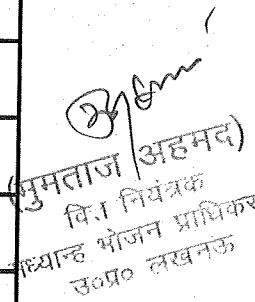 (मुमताज अहमद)
नियंत्रक
मध्यान्ह भोजन प्राधिकर
उ०प्र० लखनऊ